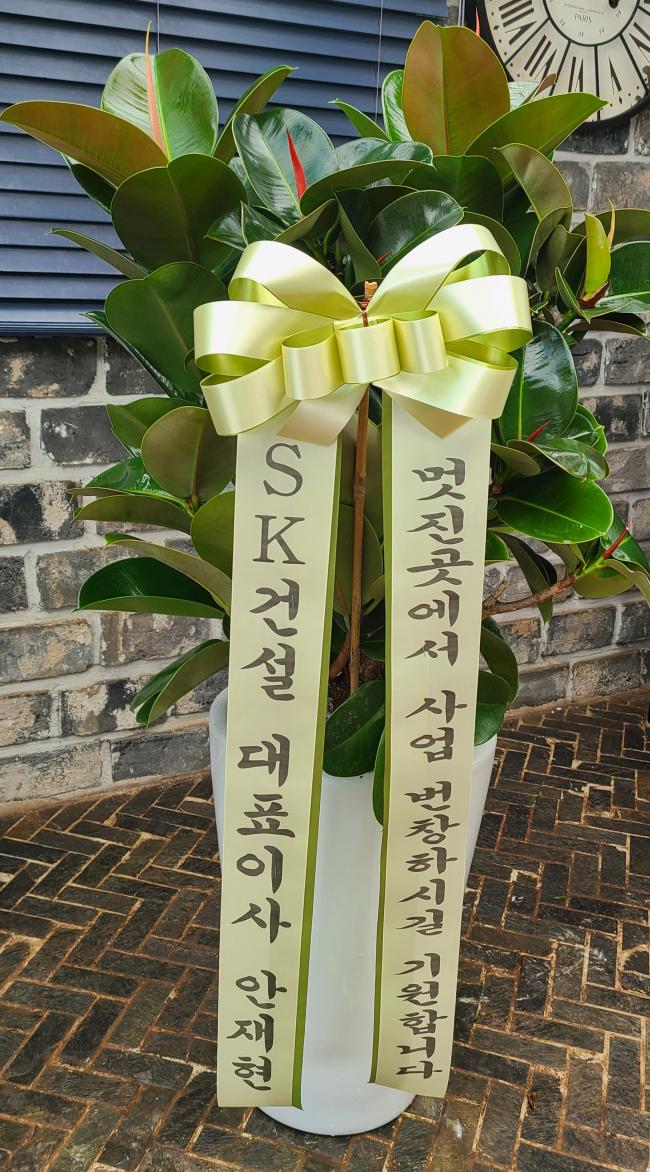 SK건설 대표이사 안재현
멋진곳에서 사업 번창하시길 기원합니다
PARIS